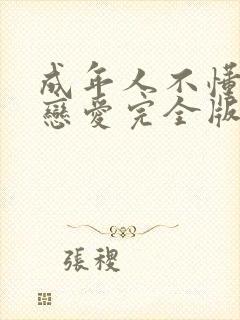 成年人不懂
戀愛完全版
張稷